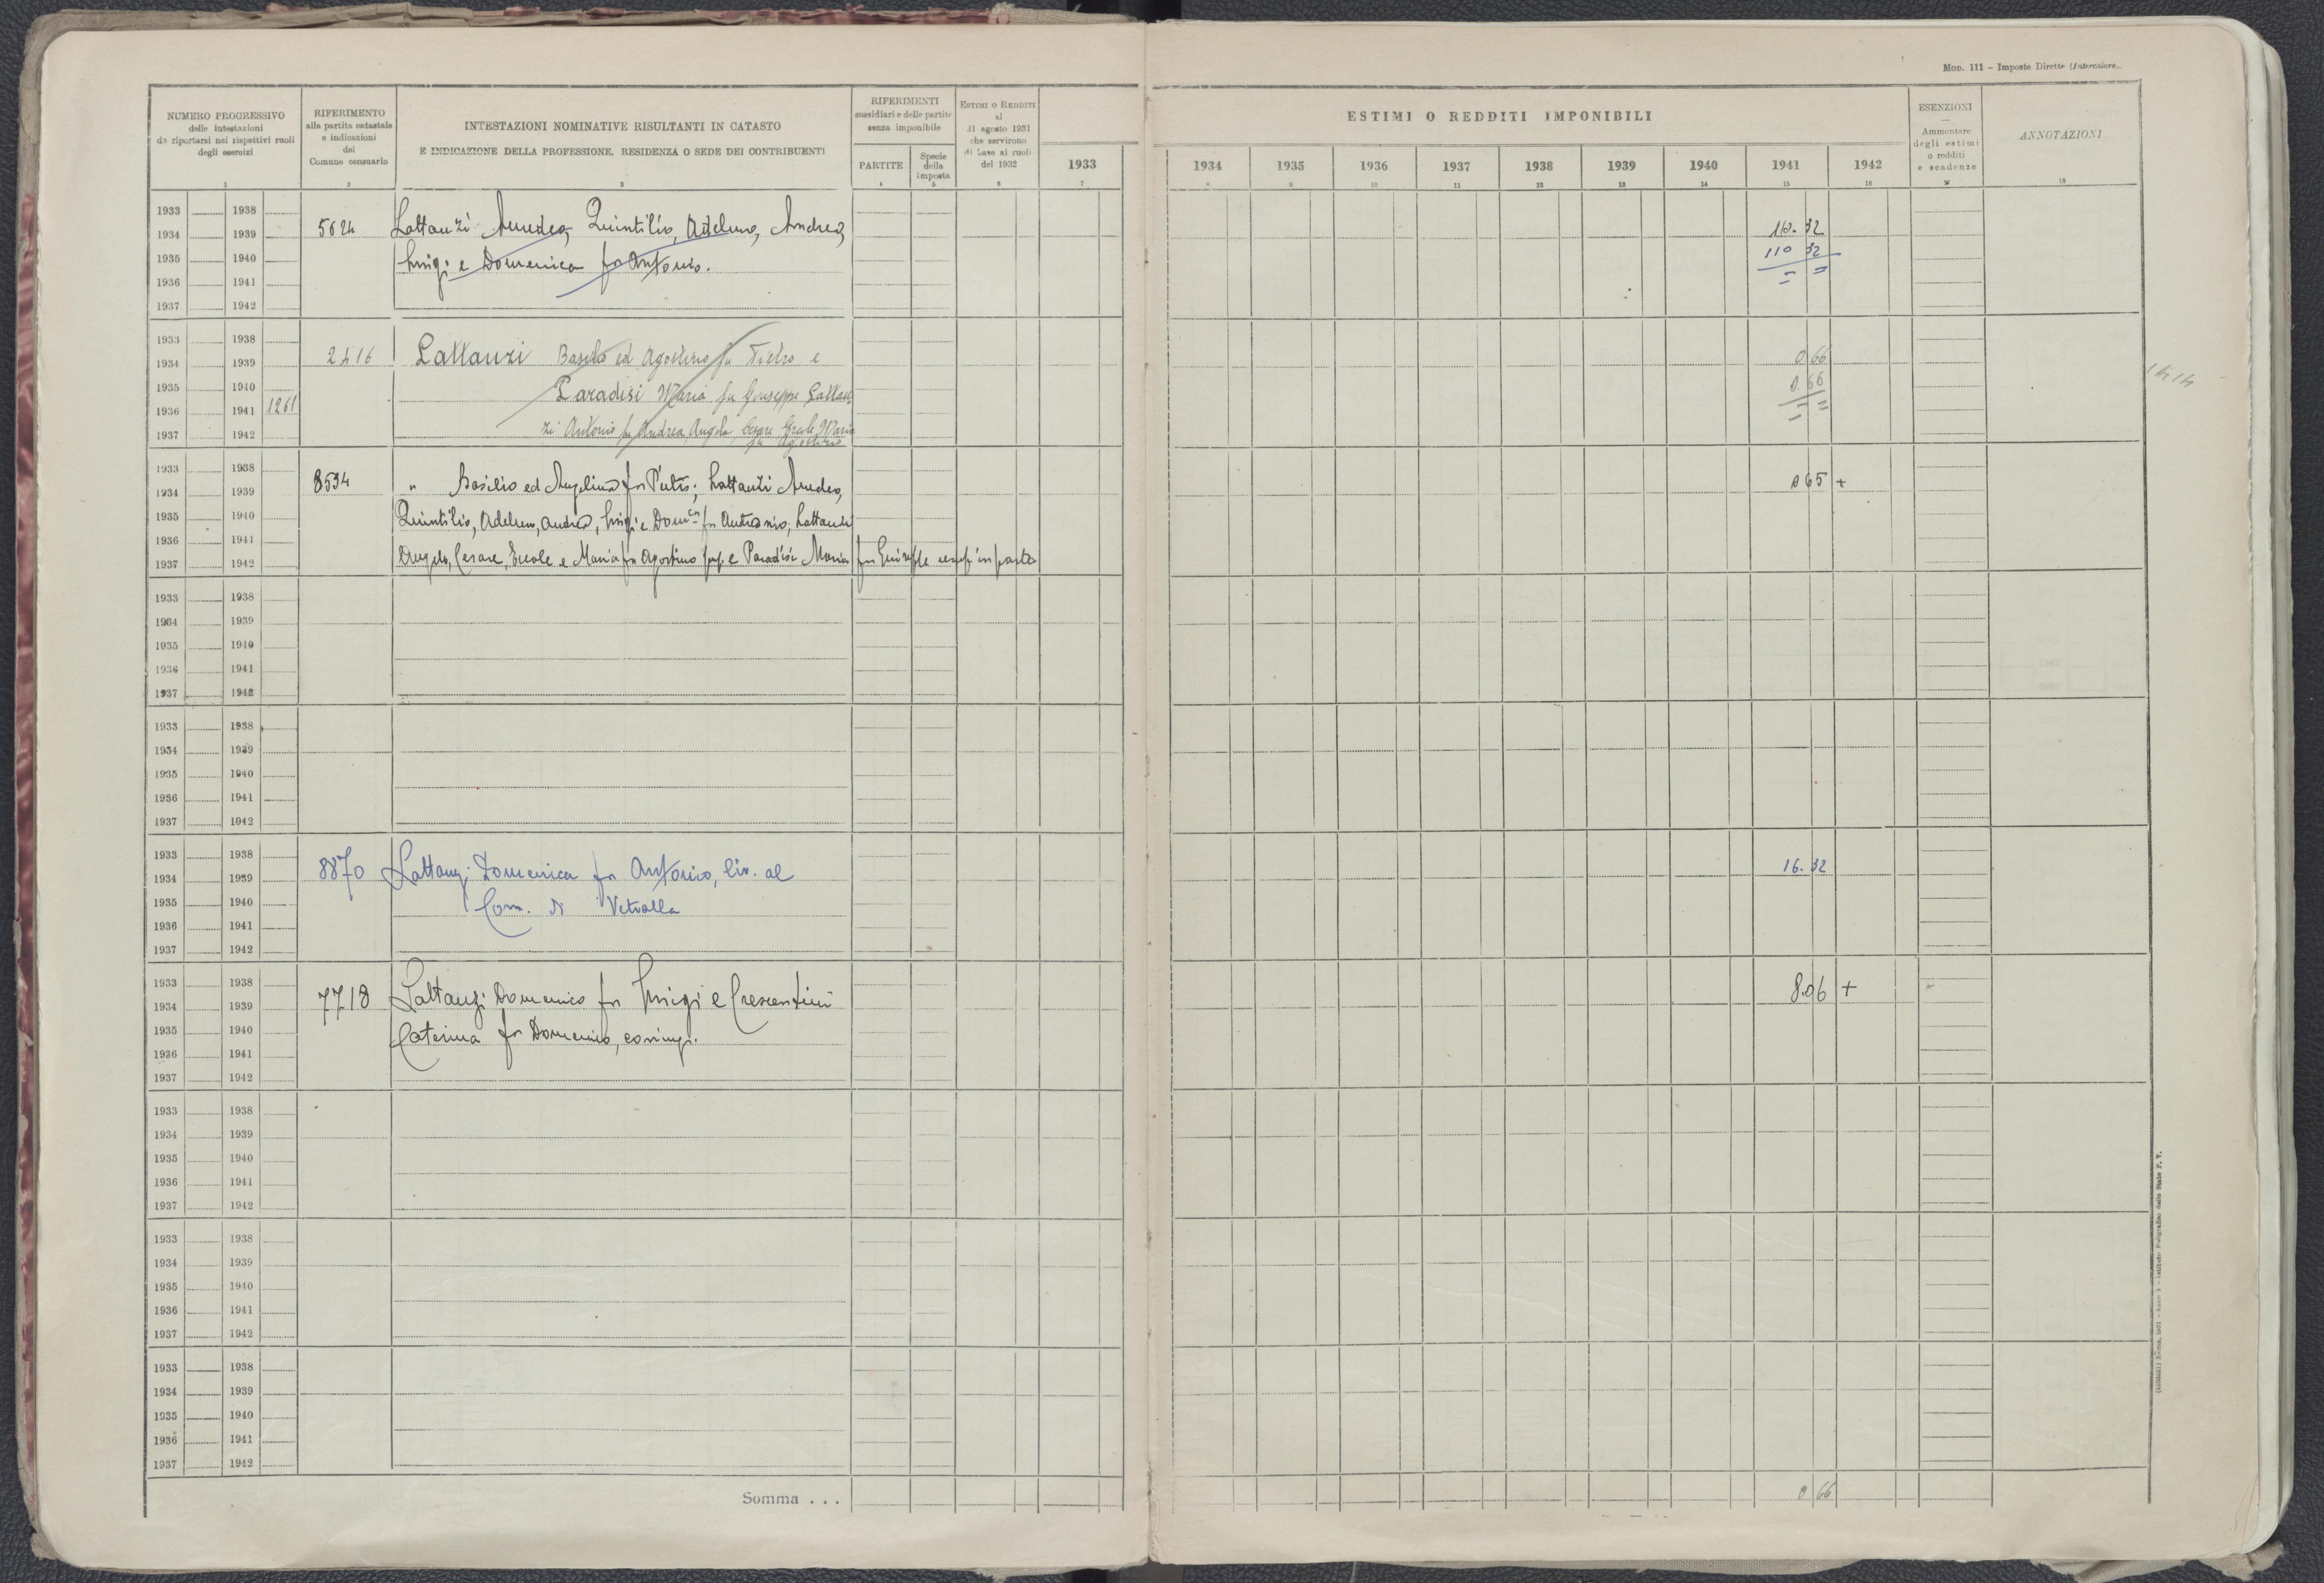 Mod. 111 - Imposte Dirette (Intercalare
NUMERO PROGRESSIVO
delle intestazioni
da riportarsi nei rispettivi ruoli
degli esercizi
RIFERIMENTO
alla partita catastale
e indicazioni
del
Comune censuario
INTESTAZIONI NOMINATIVE RISULTANTI IN CATASTO
E INDICAZIONE DELLA PROFESSIONE, RESIDENZA O SEDE DEI CONTRIBUENTI
RIFERIMENTI
sussidiari e delle partite
senza imponibile
PARTITE
Specie
della
imposta
ESTIMI O REDDITI
al
31 agosto 1931
che servirono
di base ai ruoli
del 1932
ESTIMI O REDDITI IMPONIBILI
1933 1934 1935 1936 1937 1938 1939 1940 1941 1942
ESENZIONI
Ammontare
degli estimi
o redditi
e scadenze
ANNOTAZIONI
1 2 3 4 5 6 7 8 9 10 11 12 13 14 15 16 17 18
1933 1938
1934 1939 5624 Lattanzi Amedeo, Quintilio, Adelmo, Andrea, 110.32
1935 1940 Luigi e Domenica fu Antonio. 110 32
1936 1941 = =
1937 1942
1933 1938
1934 1939 2416 Lattanzi Basilio ed Agostino fu Pietro e 0 66
1935 1940 Paradisi Maria fu Giuseppe Lattan 0 66 1414
1936 1941 1261 = =
1937 1942 zi Antonio fu Andrea, Angelo, Cesare, Ercole, Maria
fu Agostino
1933 1938
1934 1939 8594 " Basilio ed Angelina fu Pietro; Lattanzi Amedeo, 0 65 +
1935 1940 Quintilio, Adelmo, Andrea, Luigi e Dom.ca fu Antonio, Lattanzi
1936 1941
1937 1942 Angelo, Cesare, Ercole e Maria fu Agostino e Paradisi Maria fu Giuseppe usuf in parte
1933 1938
1934 1939
1935 1940
1936 1941
1937 1942
1933 1938
1934 1939
1935 1940
1936 1941
1937 1942
1933 1938
1934 1939 8870 Lattanzi Domenica fu Antonio, liv. al 16.32
1935 1940 Com. di Vetralla
1936 1941
1937 1942
1933 1938
1934 1939 7718 Lattanzi Domenico fu Luigi e Crescentini 8.06 +
1935 1940 Caterina fu Domenico, coniugi.
1936 1941
1937 1942
1933 1938
1934 1939
1935 1940
1936 1941
1937 1942
1933 1938
1934 1939
1935 1940
1936 1941
1937 1942
1933 1938
1934 1939
1935 1940
1936 1941
1937 1942
Somma . . . 0 66
Roma, 1931 - Anno - Istituto Poligrafico dello Stato P. V.